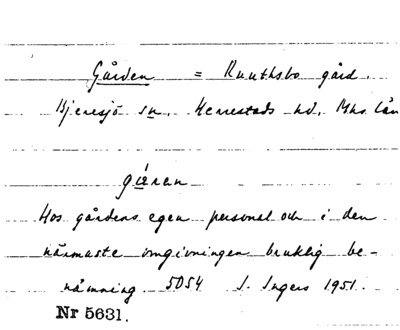 Gården = Ruuthsbo gård.
Bjeresjö sn, Herrestads hd, Mhs län
gå̇ræn
Hos gårdens egen personal och i den
närmaste omgivningen bruklig be-
nämning. 5054 I. Ingers 1951.
Nr 5631.